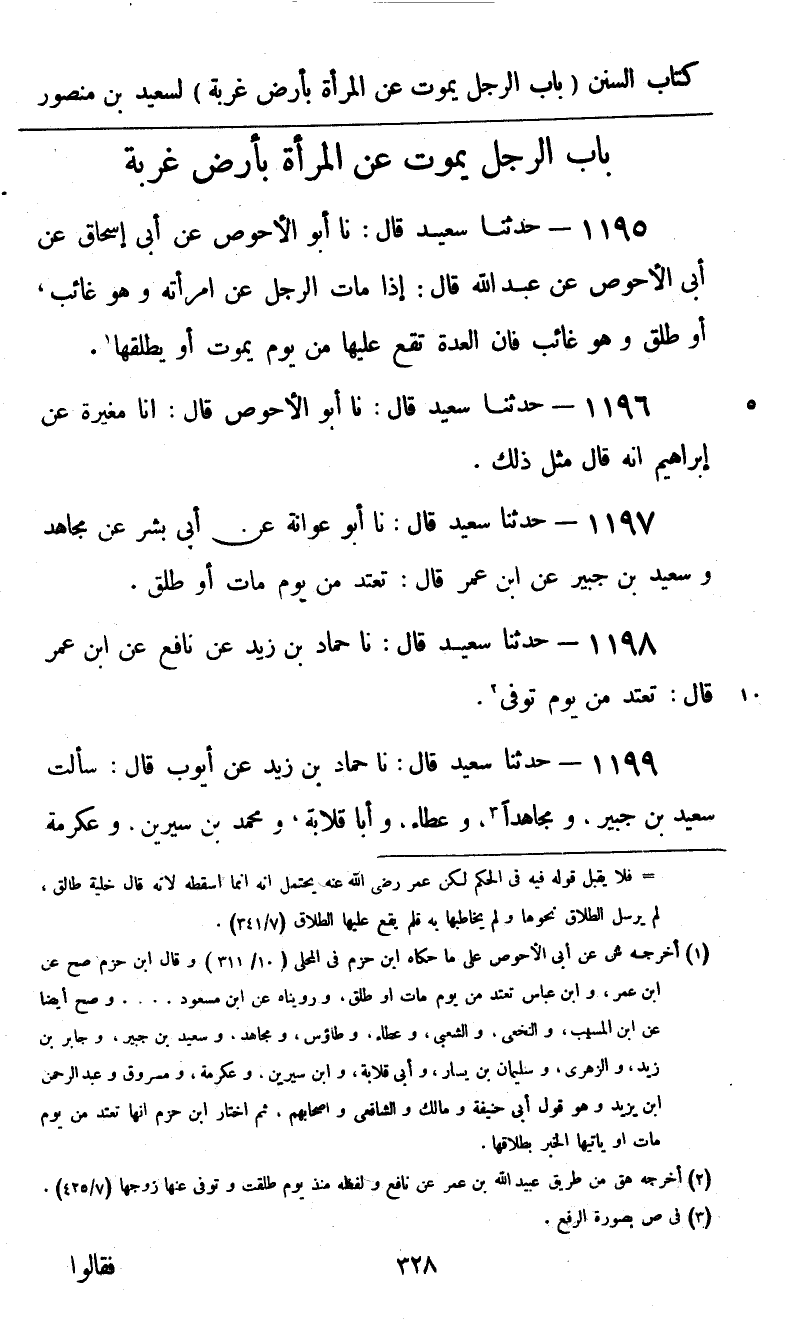 كتاب السنن ( باب الرجل يموت عن المرأة بأرض غربة ) لسعيد بن منصور
باب الرجل يموت عن المرأة بأرض غربة
١١٩٥ – حدثنـا سعيـد قال : نا أبو الأحوص عن أبى إسحاق عن
أبى الأحوص عن عبـد الله قال : إذا مات الرجل عن امرأته و هو غائب ،
أو طلق و هو غائب فان العدة تقع عليها من يوم يموت أو يطلقها١ .
١١٩٦ – حدثنـا سعيد قال : نا أبو الأحوص قال : انا مغيرة عن
٥
إبراهيم انه قال مثل ذلك .
١١٩٧ – حدثنا سعيد قال : نا أبو عوانة عن أبى بشر عن مجاهد
و سعيد بن جبير عن ابن عمر قال : تعتد من يوم مات أو طلق .
١١٩٨ – حدثنا سعيـد قال : نا حماد بن زيد عن نافع عن ابن عمر
قال : تعتد من يوم توفى٢ .
١٠
١١٩٩ – حدثنا سعيد قال : نا حماد بن زيد عن أيوب قال : سألت
سعيد بن جبير ، و مجاهداً٣ ، و عطاء ، و أبا قلابة ، و محمد بن سيرين ، و عكرمة
= فلا يقبل قوله فيه فى الحكم لكن عمر رضى الله عنه يحتمل انه انما اسقطه لانه قال خلية طالق ،
لم يرسل الطلاق نحوها و لم يخاطبها به فلم يقع عليها الطلاق (٣٤١/٧) .
(١) أخرجـه ش عن أبى الأحوص على ما حكاه ابن حزم فى المحلى ( ١٠/ ٣١١ ) و قال ابن حزم صح عن
ابن عمر ، و ابن عباس تعتد من يوم مات او طلق ، و رويناه عن ابن مسعود . . . . و صح أيضا
عن ابن المسيب ، و النخعى ، و الشعبى ، و عطاء ، و طاؤس ، و مجاهد ، و سعيد بن جبير ، و جابر بن
زيد ، و الزهرى ، و سليمان بن يسار ، و أبى قلابة ، و ابن سيرين ، و عكرمة ، و مسروق و عبد الرحمن
ابن يزيد و هو قول أبى حنيفة و مالك و الشافعى و اصحابهم ، ثم اختار ابن حزم انها تعتد من يوم
مات او ياتيها الخبر بطلاقها .
(٢) أخرجه هق من طريق عبيد الله بن عمر عن نافع و لفظه منذ يوم طلقت و توفى عنها زوجها (٤٢٥/٧) .
(٣) فى ص بصورة الرفع .
٣٢٨
فقالوا